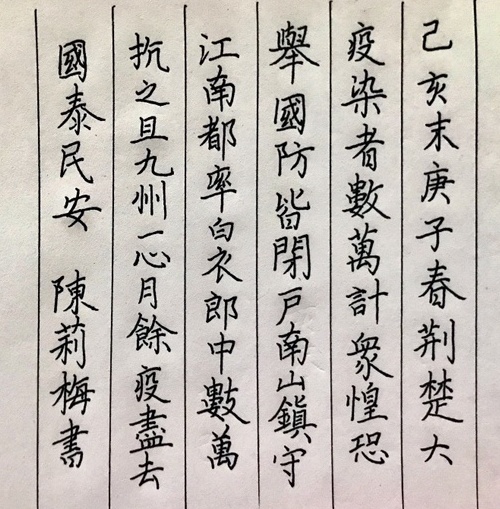 己亥末庚子春荆楚大
疫染者數萬計衆惶恐
舉國防皆閉戸南山鎮守
江南都率白衣郎中數萬
抗之且九州一心月餘疫盡去
國泰民安 陳莉梅書